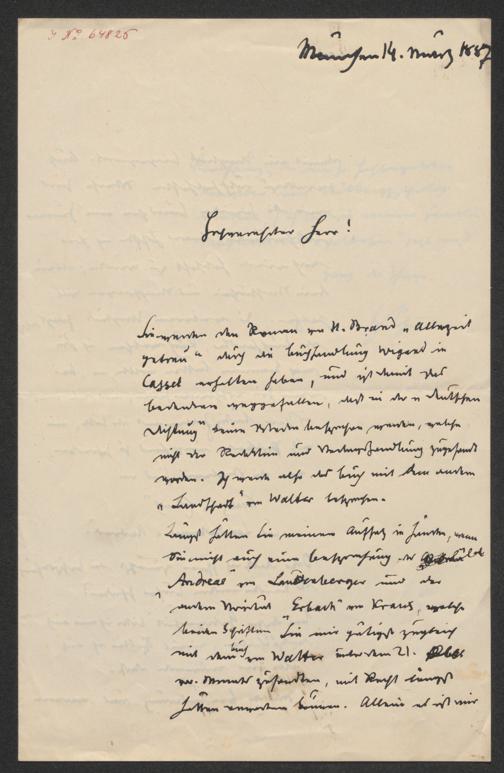 J. No 64825
München 14. März 1887
Hochverehrter Herr!
Sie werden den Roman von H. Brand „Allezeit
getreu“ durch die Buchhandlung Wigand in
Cassel erhalten haben, und ist damit das
Bedenken weggefallen, daß in der „deutschen
Dichtung“ keine Werke besprochen werden, welche
nicht der Redaktion und Verlagshandlung zugesandt
worden. Ich werde also das Buch mit dem andern
„Landschade“ von Walter besprechen.
Längst hätten Sie meinen Aufsatz in Händen, wenn
Sie nicht auch eine Besprechung der
Andreae“ von Landenberger und der
„ Erbach“ von Kraus, welche
beiden Schriften Sie mir gütigst zugleich
mit dem Buch von Walter unter dem 21.
vor. Monats zusandten, mit Recht längst
hätten erwarten können. Allein es ist mir